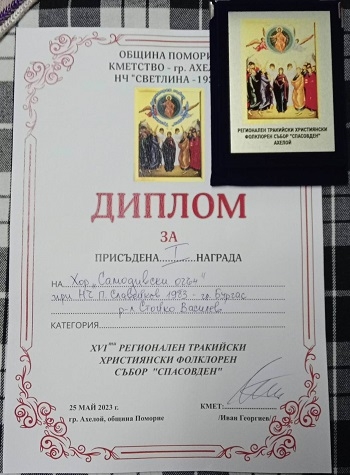 ОБЩИНА ПОМОРИЕ
КМЕТСТВО - гр. АХЕЛОЙ
НЧ "СВЕТЛИНА -19
РЕГИОНАЛЕН ТРАКИЙСКИ ХРИСТИЯНСКИ
ФОЛКЛОРЕН СЪБОР "СПАСОВДЕН"
АХЕЛОЙ
ДИПЛОМ
ЗА
ПРИСЪДЕНА......I......НАГРАДА
НА Хор „Самодивски огън"
при НЧ П. Славейков 1983 - гр. Бургас
р-л Стойко Василев
КАТЕГОРИЯ
XVI РЕГИОНАЛЕН ТРАКИЙСКИ
ХРИСТИЯНСКИ ФОЛКЛОРЕН
СЪБОР "СПАСОВДЕН"
25 МАЙ 2023 г.
гр. Ахелой, община Поморие
КМЕТ:
/Иван Георгиев/